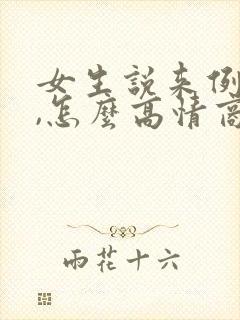 女生說来例
,怎麼高情商
雨花十六